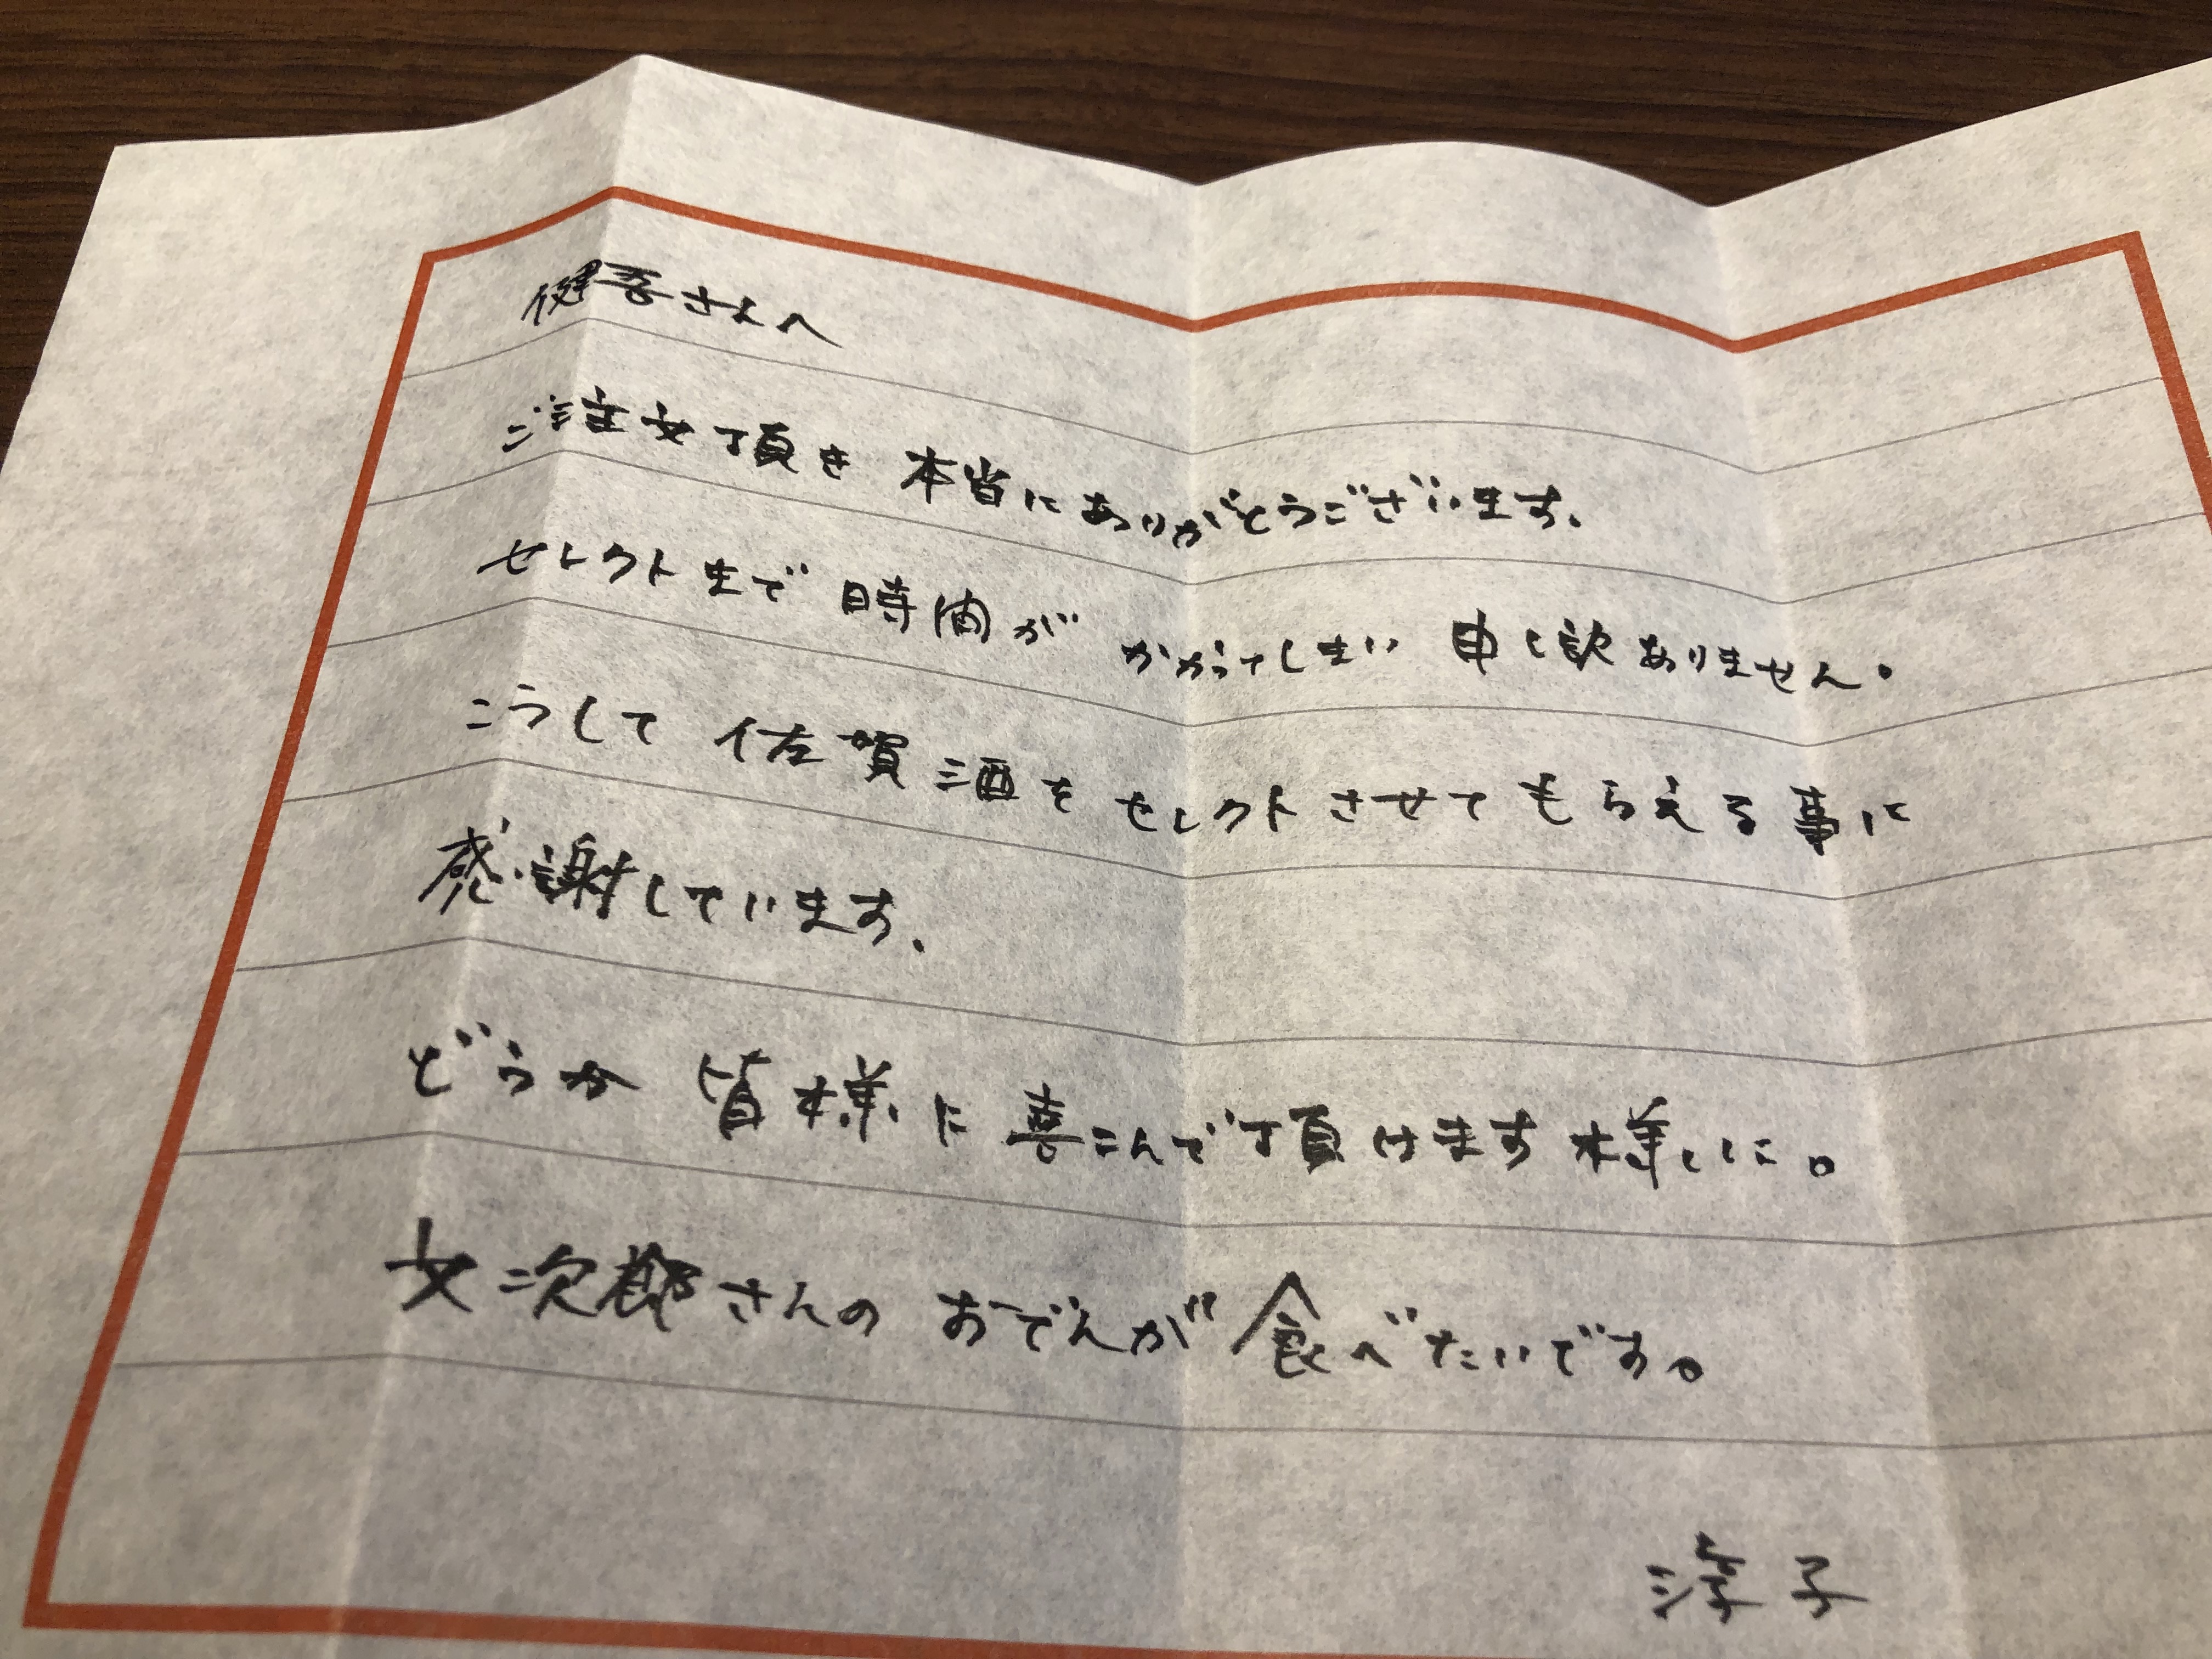 健吾さんへ
ご注文頂き 本当にありがとうございます、
セレクトまで 時間が かかってしまい 申し訳ありません。
こうして 佐賀酒を セレクトさせて もらえる事に
感謝しています、
どうか 皆様に喜こんで頂けます様に。
安次郎さんの おでんが食べたいです。
淳子